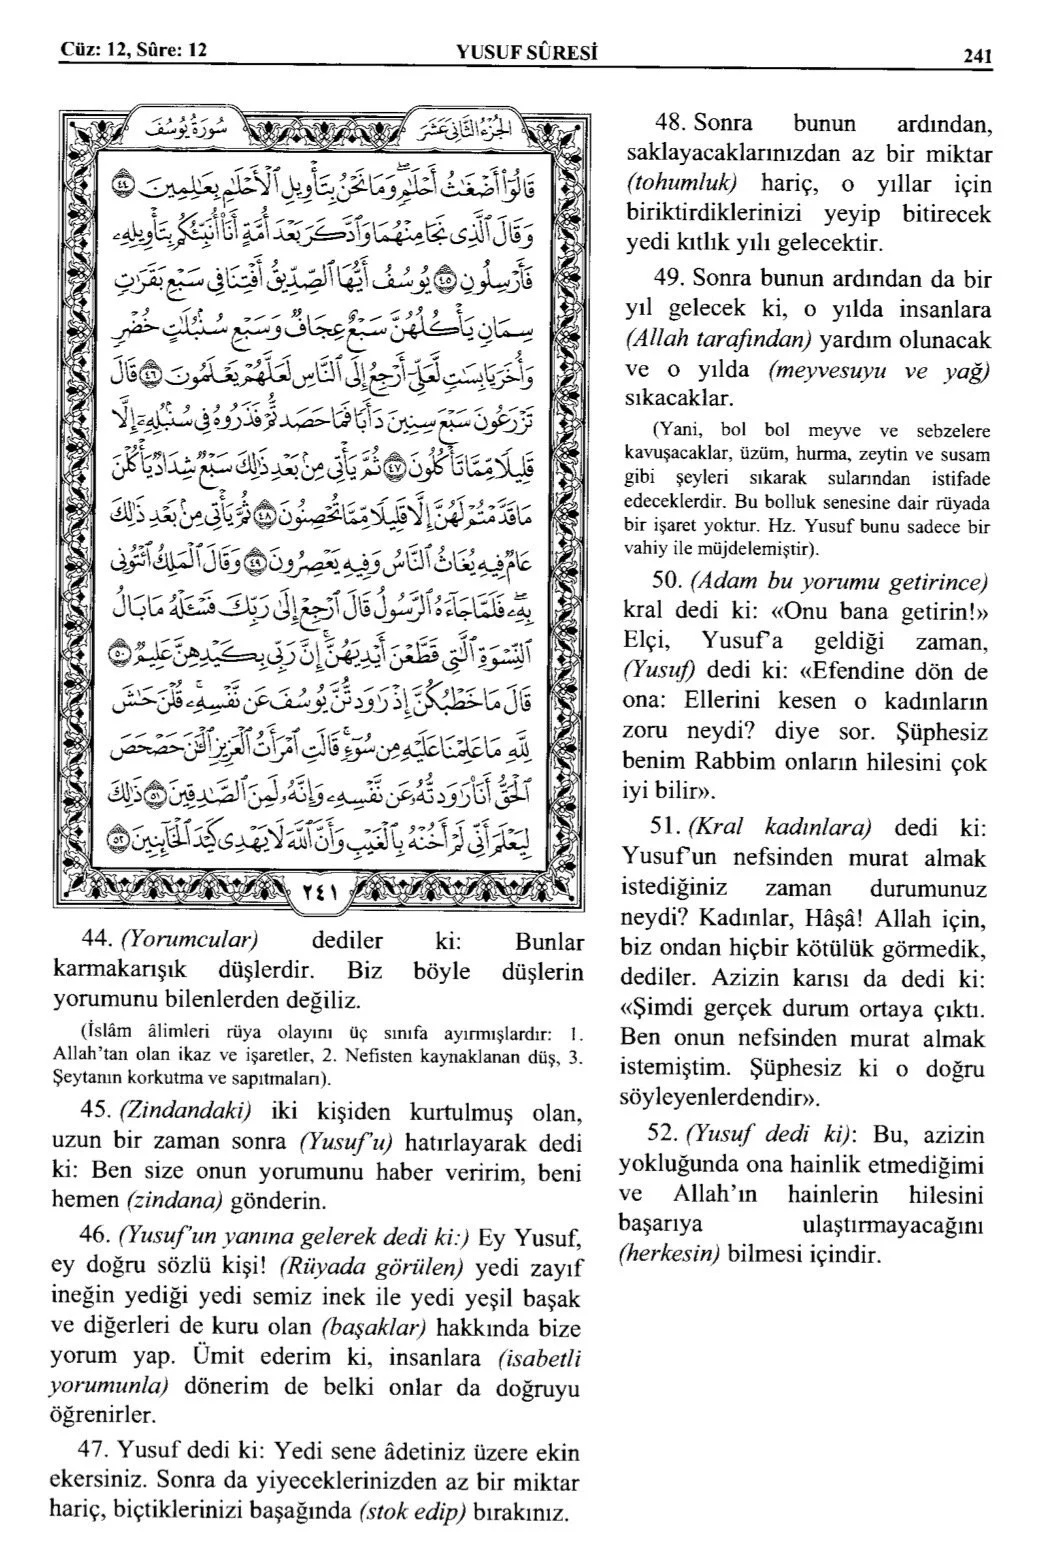 Cüz: 12, Sûre: 12
YUSUF SÛRESİ
241
سُورَةُ يُوسُفَ
الجُزْءُ الثَّانِي عَشَرَ
قَالُوٓا۟ أَضْغَٰثُ أَحْلَٰمٍ وَمَا نَحْنُ بِتَأْوِيلِ ٱلْأَحْلَٰمِ بِعَٰلِمِينَ ٤٤
وَقَالَ ٱلَّذِى نَجَا مِنْهُمَا وَٱدَّكَرَ بَعْدَ أُمَّةٍ أَنَا۠ أُنَبِّئُكُم بِتَأْوِيلِهِۦ
فَأَرْسِلُونِ ٤٥ يُوسُفُ أَيُّهَا ٱلصِّدِّيقُ أَفْتِنَا فِى سَبْعِ بَقَرَٰتٍ
سِمَانٍ يَأْكُلُهُنَّ سَبْعٌ عِجَافٌ وَسَبْعِ سُنۢبُلَٰتٍ خُضْرٍ
وَأُخَرَ يَابِسَٰتٍ لَّعَلِّىٓ أَرْجِعُ إِلَى ٱلنَّاسِ لَعَلَّهُمْ يَعْلَمُونَ ٤٦ قَالَ
تَزْرَعُونَ سَبْعَ سِنِينَ دَأَبًا فَمَا حَصَدتُّمْ فَذَرُوهُ فِى سُنۢبُلِهِۦٓ إِلَّا
قَلِيلًا مِّمَّا تَأْكُلُونَ ٤٧ ثُمَّ يَأْتِى مِنۢ بَعْدِ ذَٰلِكَ سَبْعٌ شِدَادٌ يَأْكُلْنَ
مَا قَدَّمْتُمْ لَهُنَّ إِلَّا قَلِيلًا مِّمَّا تُحْصِنُونَ ٤٨ ثُمَّ يَأْتِى مِنۢ بَعْدِ ذَٰلِكَ
عَامٌ فِيهِ يُغَاثُ ٱلنَّاسُ وَفِيهِ يَعْصِرُونَ ٤٩ وَقَالَ ٱلْمَلِكُ ٱئْتُونِى
بِهِۦ فَلَمَّا جَآءَهُ ٱلرَّسُولُ قَالَ ٱرْجِعْ إِلَىٰ رَبِّكَ فَسْـَٔلْهُ مَا بَالُ
ٱلنِّسْوَةِ ٱلَّٰتِى قَطَّعْنَ أَيْدِيَهُنَّ إِنَّ رَبِّى بِكَيْدِهِنَّ عَلِيمٌ ٥٠
قَالَ مَا خَطْبُكُنَّ إِذْ رَٰوَدتُّنَّ يُوسُفَ عَن نَّفْسِهِۦ قُلْنَ حَٰشَ
لِلَّهِ مَا عَلِمْنَا عَلَيْهِ مِن سُوٓءٍ قَالَتِ ٱمْرَأَتُ ٱلْعَزِيزِ ٱلْـَٰٔنَ حَصْحَصَ
ٱلْحَقُّ أَنَا۠ رَٰوَدتُّهُۥ عَن نَّفْسِهِۦ وَإِنَّهُۥ لَمِنَ ٱلصَّٰدِقِينَ ٥١ ذَٰلِكَ
لِيَعْلَمَ أَنِّى لَمْ أَخُنْهُ بِٱلْغَيْبِ وَأَنَّ ٱللَّهَ لَا يَهْدِى كَيْدَ ٱلْخَآئِنِينَ ٥٢
٢٤١
44. (Yorumcular) dediler ki: Bunlar
karmakarışık düşlerdir. Biz böyle düşlerin
yorumunu bilenlerden değiliz.
(İslâm âlimleri rüya olayını üç sınıfa ayırmışlardır: 1.
Allah'tan olan ikaz ve işaretler, 2. Nefisten kaynaklanan düş, 3.
Şeytanın korkutma ve sapıtmaları).
45. (Zindandaki) iki kişiden kurtulmuş olan,
uzun bir zaman sonra (Yusuf'u) hatırlayarak dedi
ki: Ben size onun yorumunu haber veririm, beni
hemen (zindana) gönderin.
46. (Yusuf'un yanına gelerek dedi ki:) Ey Yusuf,
ey doğru sözlü kişi! (Rüyada görülen) yedi zayıf
ineğin yediği yedi semiz inek ile yedi yeşil başak
ve diğerleri de kuru olan (başaklar) hakkında bize
yorum yap. Ümit ederim ki, insanlara (isabetli
yorumunla) dönerim de belki onlar da doğruyu
öğrenirler.
47. Yusuf dedi ki: Yedi sene âdetiniz üzere ekin
ekersiniz. Sonra da yiyeceklerinizden az bir miktar
hariç, biçtiklerinizi başağında (stok edip) bırakınız.
48. Sonra bunun ardından,
saklayacaklarınızdan az bir miktar
(tohumluk) hariç, o yıllar için
biriktirdiklerinizi yeyip bitirecek
yedi kıtlık yılı gelecektir.
49. Sonra bunun ardından da bir
yıl gelecek ki, o yılda insanlara
(Allah tarafından) yardım olunacak
ve o yılda (meyvesuyu ve yağ)
sıkacaklar.
(Yani, bol bol meyve ve sebzelere
kavuşacaklar, üzüm, hurma, zeytin ve susam
gibi şeyleri sıkarak sularından istifade
edeceklerdir. Bu bolluk senesine dair rüyada
bir işaret yoktur. Hz. Yusuf bunu sadece bir
vahiy ile müjdelemiştir).
50. (Adam bu yorumu getirince)
kral dedi ki: «Onu bana getirin!»
Elçi, Yusuf'a geldiği zaman,
(Yusuf) dedi ki: «Efendine dön de
ona: Ellerini kesen o kadınların
zoru neydi? diye sor. Şüphesiz
benim Rabbim onların hilesini çok
iyi bilir».
51. (Kral kadınlara) dedi ki:
Yusuf'un nefsinden murat almak
istediğiniz zaman durumunuz
neydi? Kadınlar, Hâşâ! Allah için,
biz ondan hiçbir kötülük görmedik,
dediler. Azizin karısı da dedi ki:
«Şimdi gerçek durum ortaya çıktı.
Ben onun nefsinden murat almak
istemiştim. Şüphesiz ki o doğru
söyleyenlerdendir».
52. (Yusuf dedi ki): Bu, azizin
yokluğunda ona hainlik etmediğimi
ve Allah'ın hainlerin hilesini
başarıya ulaştırmayacağını
(herkesin) bilmesi içindir.